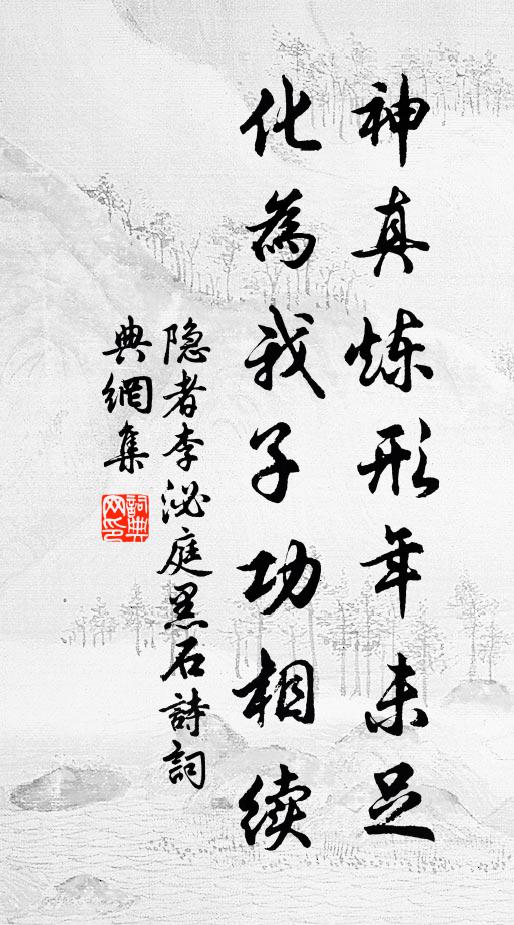 神真炼形年未足
化為我子功相续
隐者李泌庭黑石詩詞
典網集
詞典
网印